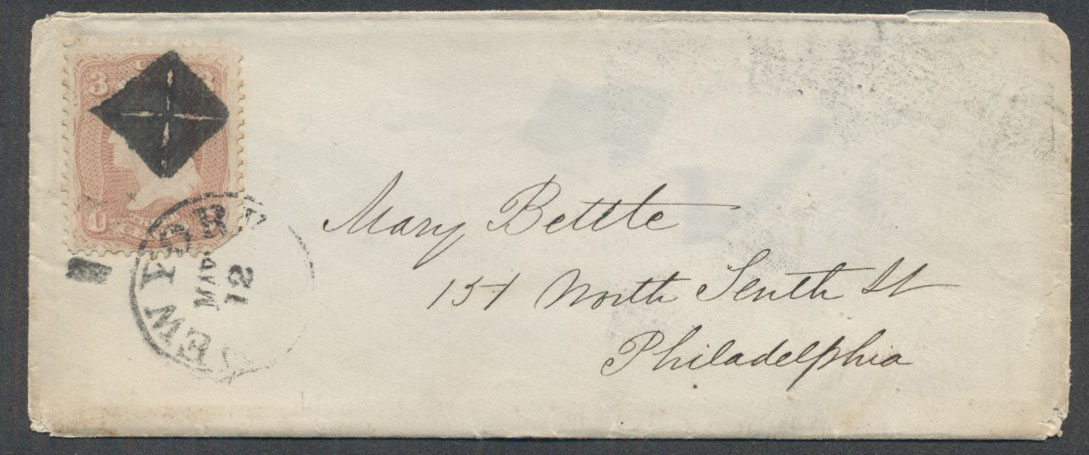 3 3
U
NEW YORK
MAR
12
Mary Bettle
151 North Tenth St
Philadelphia